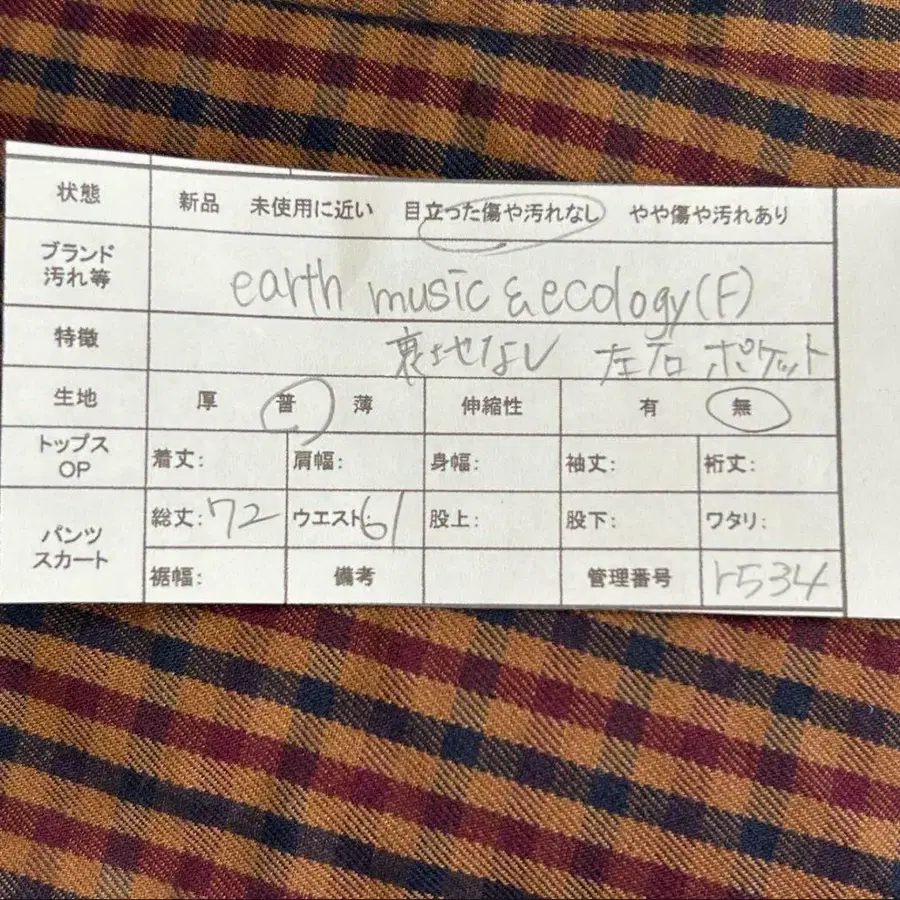 状態 新品 未使用に近い 目立った傷や汚れなし やや傷や汚れあり
ブランド
汚れ等
earth music & ecology(F)
特徴 裏地なし 左右 ポケット
生地 厚 普 薄 伸縮性 有 無
トップス
OP
着丈: 肩幅: 身幅: 袖丈: 裄丈:
パンツ
スカート
総丈:72 ウエスト:61 股上: 股下: ワタリ:
裾幅: 備考 管理番号 r534